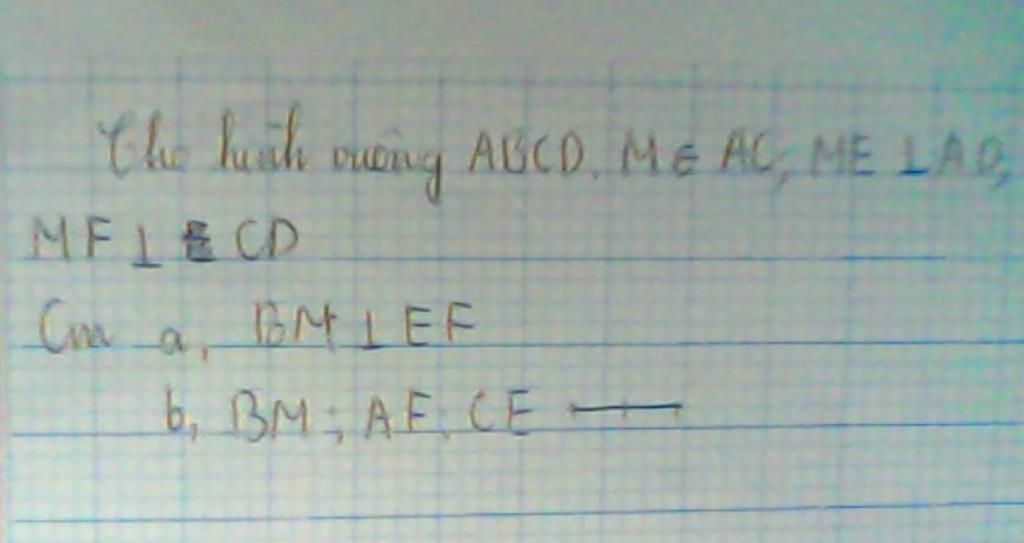 Cho hình vuông ABCD. M ∈ AC, ME ⊥ AD,
MF ⊥ CD
Cm a, BM ⊥ EF
b, BM; AF; CE